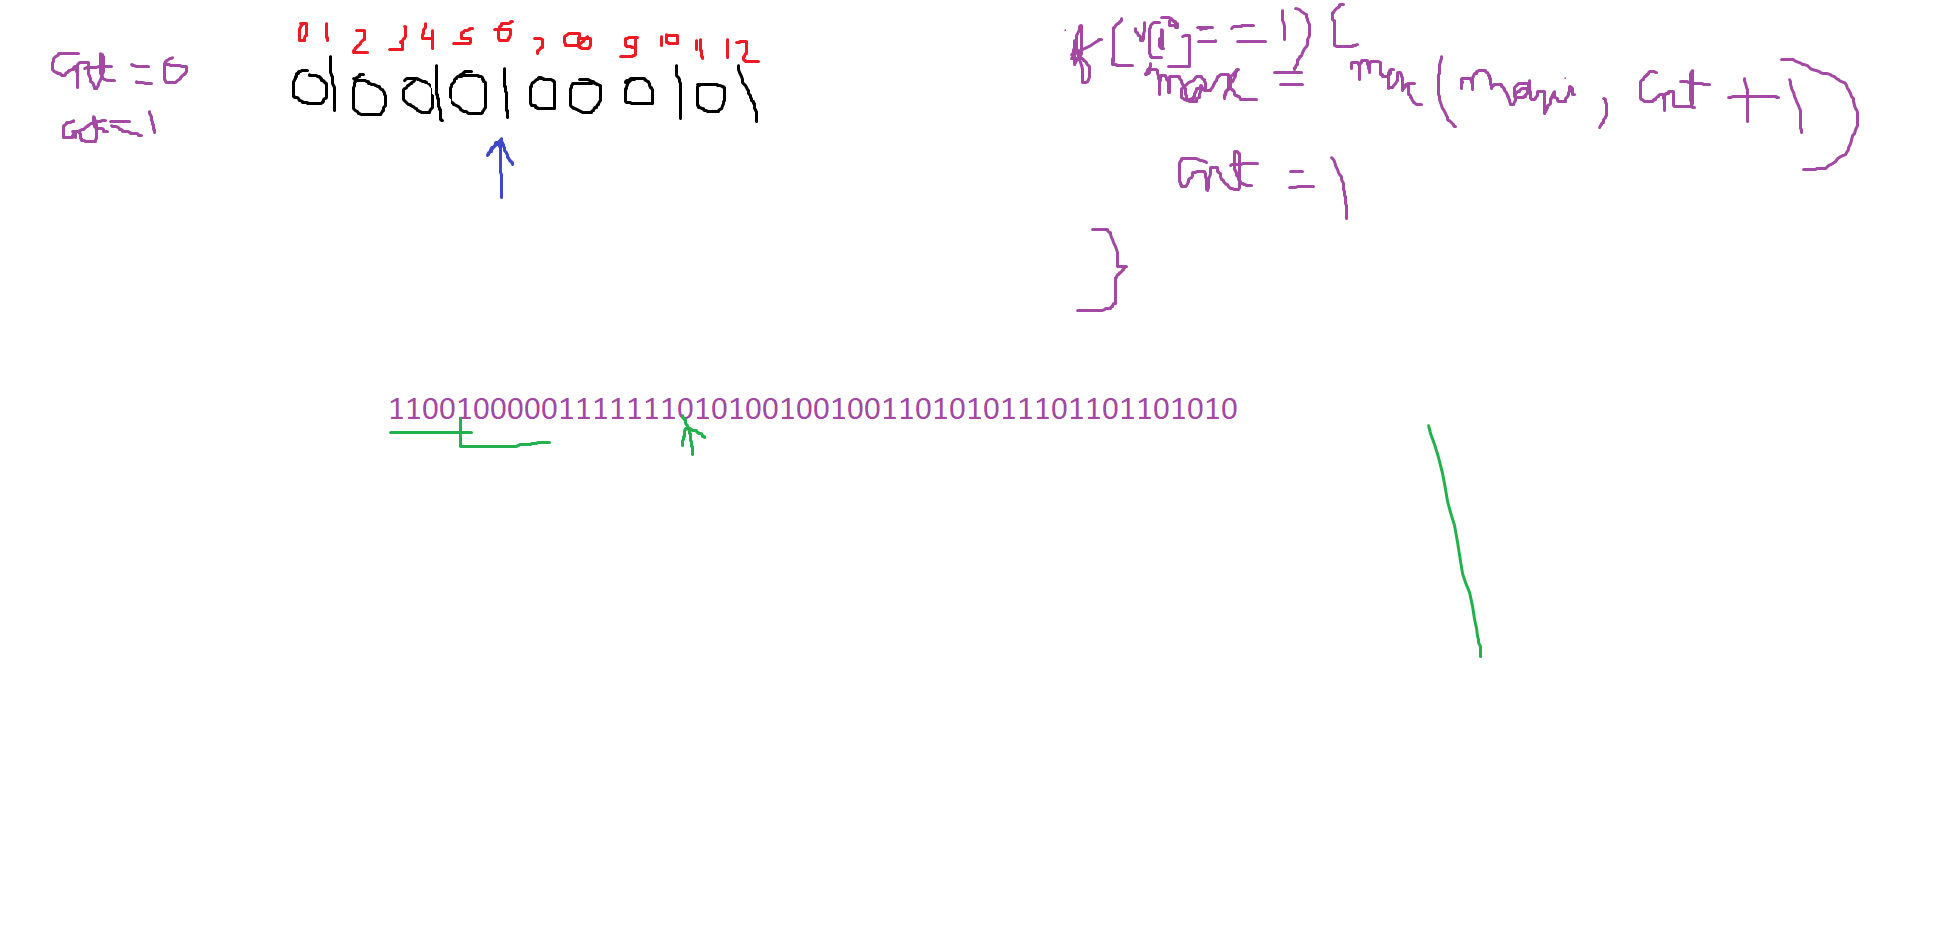 0 1 2 3 4 5 6 7 8 9 10 11 12
cnt = 0
0 1 0 0 1 0 1 0 0 0 1 0 1
cnt = 1
[i] == 1) {
= max (maxi, cnt + 1)
cnt = 1
}
11001000001111111010100100100110101011101101101010